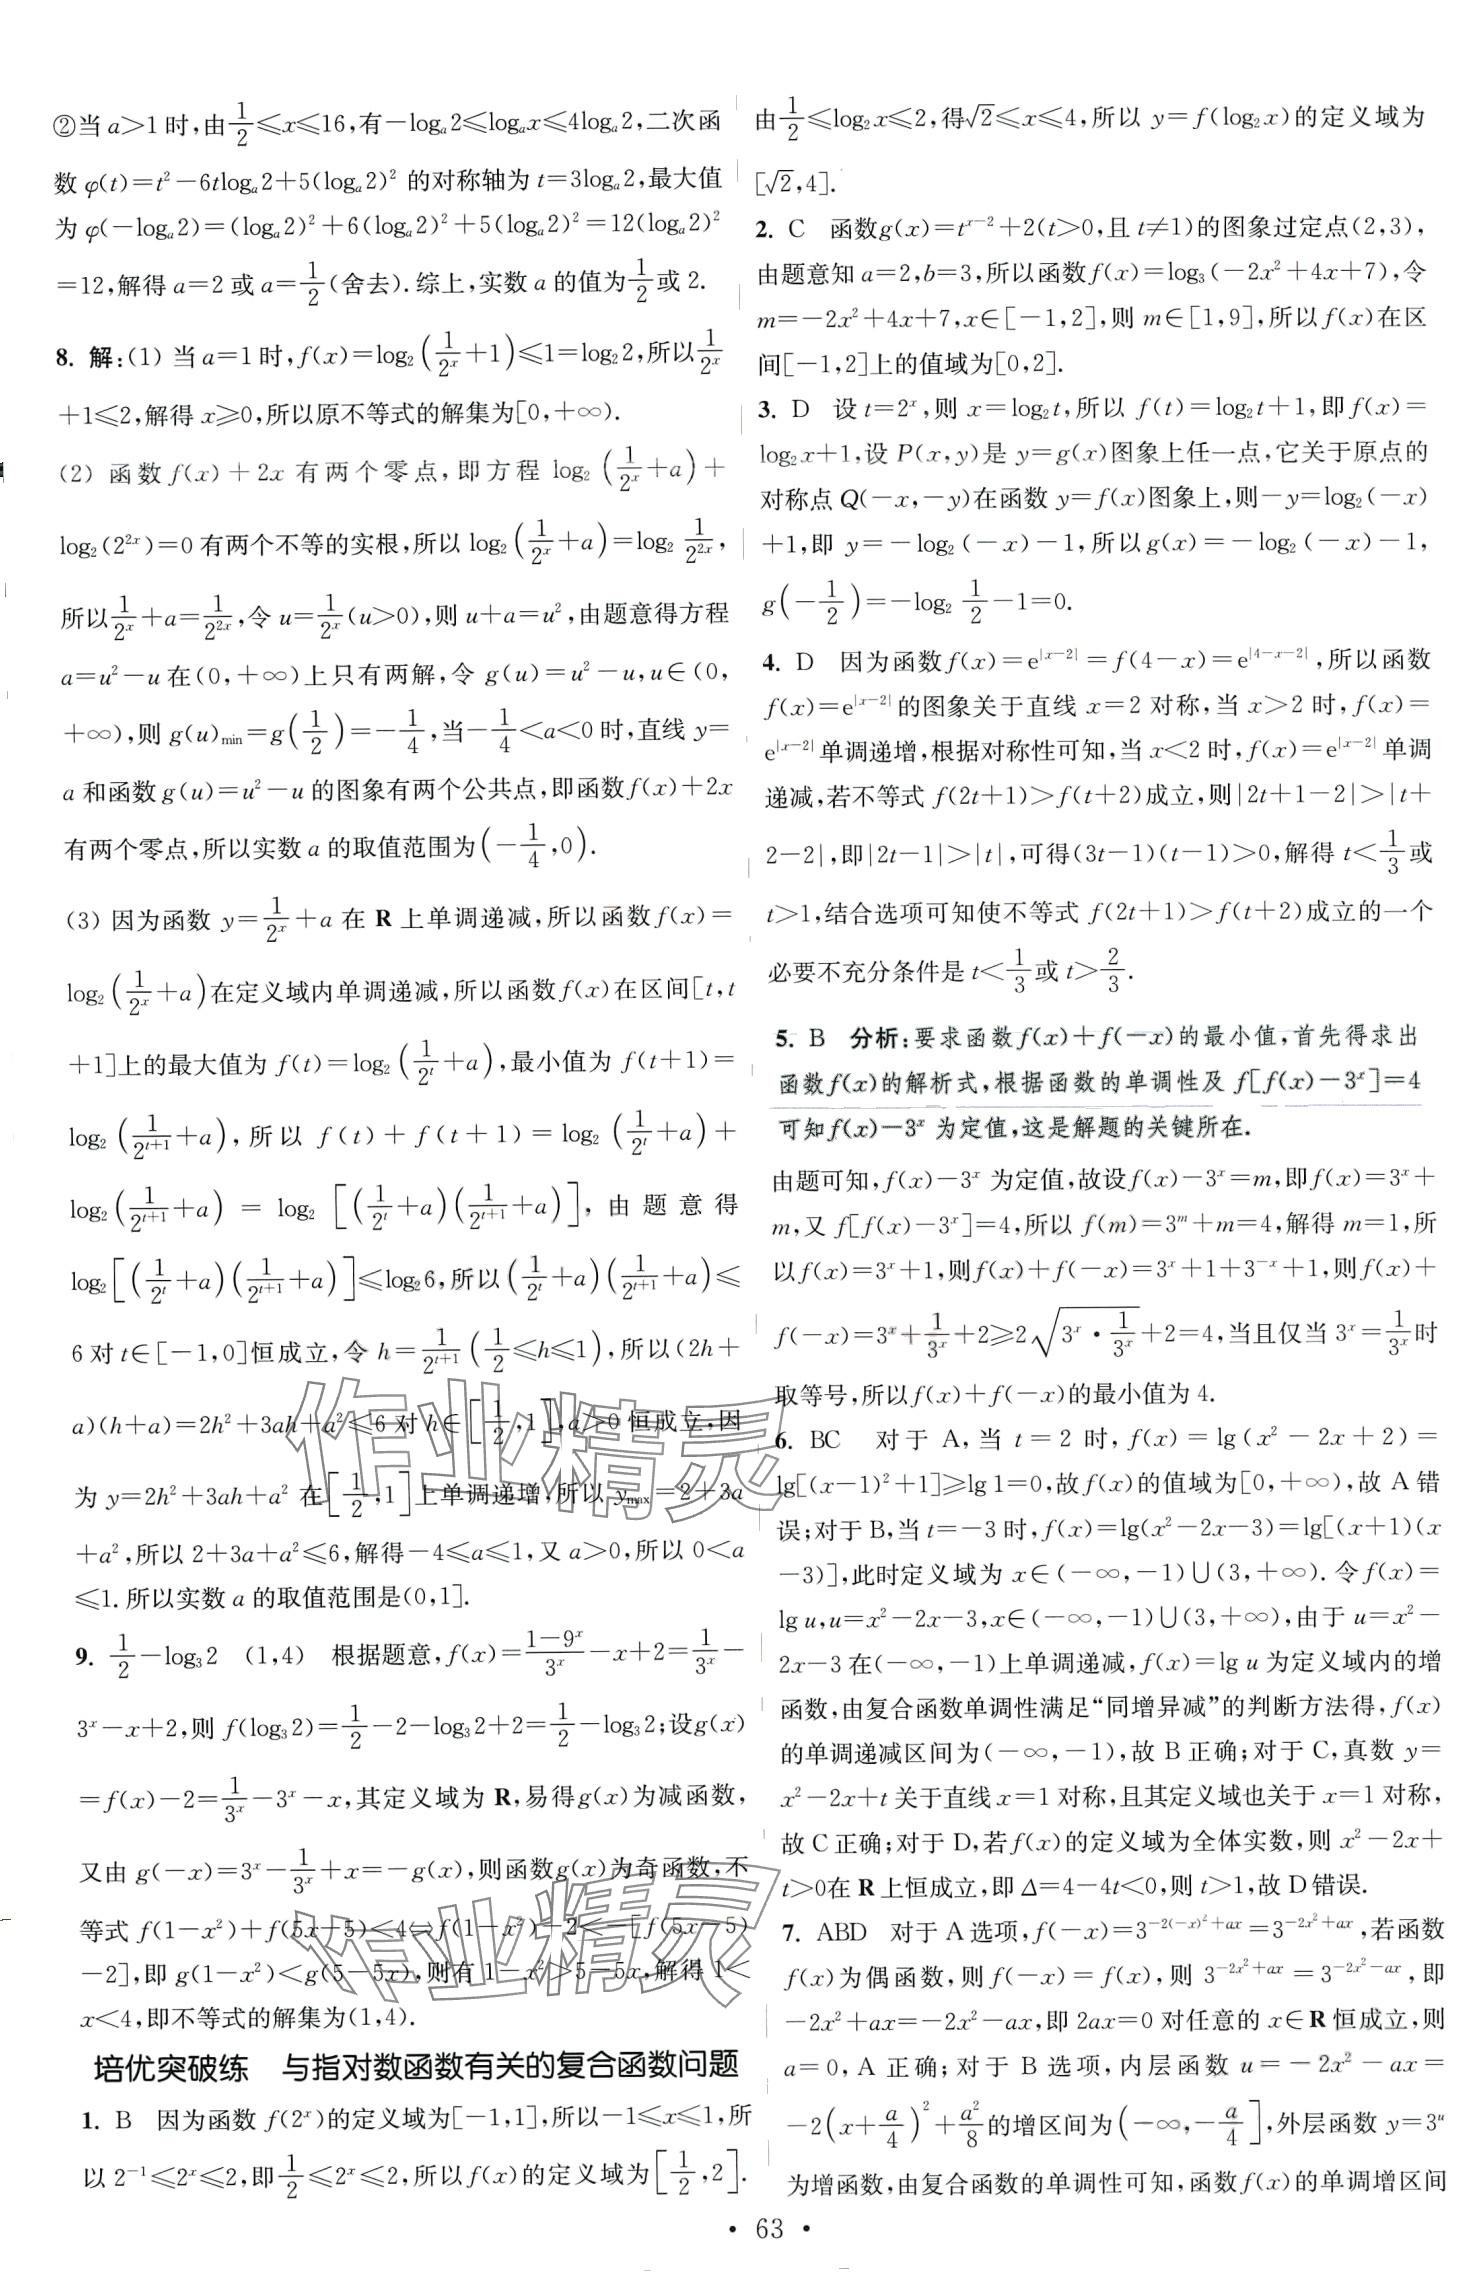 ②当 a>1 时,由1/2≤x≤16,有-logₐ2≤logₐx≤4logₐ2,二次函
数 φ(t)=t²-6tlogₐ2+5(logₐ2)² 的对称轴为 t=3logₐ2,最大值
为 φ(-logₐ2)=(logₐ2)²+6(logₐ2)²+5(logₐ2)²=12(logₐ2)²
=12,解得 a=2 或 a=1/2(舍去).综上,实数 a 的值为1/2或 2.
8. 解:(1) 当 a=1 时,f(x)=log₂(1/2ˣ+1)≤1=log₂2,所以1/2ˣ
+1≤2,解得 x≥0,所以原不等式的解集为[0,+∞).
(2) 函数 f(x)+2x 有两个零点,即方程 log₂(1/2ˣ+a)+
log₂(2²ˣ)=0 有两个不等的实根,所以 log₂(1/2ˣ+a)=log₂ 1/2²ˣ,
所以1/2ˣ+a=1/2²ˣ,令 u=1/2ˣ(u>0),则 u+a=u²,由题意得方程
a=u²-u 在(0,+∞)上只有两解,令 g(u)=u²-u,u∈(0,
+∞),则 g(u)min=g(1/2)=-1/4,当-1/4<a<0 时,直线 y=
a 和函数 g(u)=u²-u 的图象有两个公共点,即函数f(x)+2x
有两个零点,所以实数 a 的取值范围为(-1/4,0).
(3) 因为函数 y=1/2ˣ+a 在 R 上单调递减,所以函数 f(x)=
log₂(1/2ˣ+a)在定义域内单调递减,所以函数f(x)在区间[t,t
+1]上的最大值为 f(t)=log₂(1/2ᵗ+a),最小值为 f(t+1)=
log₂(1/2ᵗ⁺¹+a),所以 f(t)+f(t+1)=log₂(1/2ᵗ+a)+
log₂(1/2ᵗ⁺¹+a)=log₂[(1/2ᵗ+a)(1/2ᵗ⁺¹+a)],由题意得
log₂[(1/2ᵗ+a)(1/2ᵗ⁺¹+a)]≤log₂6,所以(1/2ᵗ+a)(1/2ᵗ⁺¹+a)≤
6 对 t∈[-1,0]恒成立,令 h=1/2ᵗ⁺¹(1/2≤h≤1),所以(2h+
a)(h+a)=2h²+3ah+a²≤6 对 h∈[1/2,1],a>0 恒成立,因
为 y=2h²+3ah+a² 在[1/2,1]上单调递增,所以 ymax=2+3a
+a²,所以 2+3a+a²≤6,解得-4≤a≤1,又 a>0,所以 0<a
≤1.所以实数 a 的取值范围是(0,1].
9. 1/2-log₃2 (1,4) 根据题意,f(x)=(1-9ˣ)/3ˣ-x+2=1/3ˣ-
3ˣ-x+2,则 f(log₃2)=1/2-2-log₃2+2=1/2-log₃2;设g(x)
=f(x)-2=1/3ˣ-3ˣ-x,其定义域为 R,易得g(x)为减函数,
又由 g(-x)=3ˣ-1/3ˣ+x=-g(x),则函数g(x)为奇函数,不
等式 f(1-x²)+f(5x-5)<4⇔f(1-x²)-2<-[f(5x-5)
-2],即 g(1-x²)<g(5-5x),则有 1-x²>5-5x,解得 1<
x<4,即不等式的解集为(1,4).
培优突破练 与指对数函数有关的复合函数问题
1. B 因为函数 f(2ˣ)的定义域为[-1,1],所以-1≤x≤1,所
以 2⁻¹≤2ˣ≤2,即1/2≤2ˣ≤2,所以 f(x)的定义域为[1/2,2].
由1/2≤log₂x≤2,得√2≤x≤4,所以 y=f(log₂x)的定义域为
[√2,4].
2. C 函数g(x)=tˣ⁻²+2(t>0,且 t≠1)的图象过定点(2,3),
由题意知 a=2,b=3,所以函数 f(x)=log₃(-2x²+4x+7),令
m=-2x²+4x+7,x∈[-1,2],则 m∈[1,9],所以 f(x)在区
间[-1,2]上的值域为[0,2].
3. D 设 t=2ˣ,则 x=log₂t,所以 f(t)=log₂t+1,即f(x)=
log₂x+1,设 P(x,y)是 y=g(x)图象上任一点,它关于原点的
对称点 Q(-x,-y)在函数 y=f(x)图象上,则-y=log₂(-x)
+1,即 y=-log₂(-x)-1,所以g(x)=-log₂(-x)-1,
g(-1/2)=-log₂ 1/2-1=0.
4. D 因为函数 f(x)=e^|x-2|=f(4-x)=e^|4-x-2|,所以函数
f(x)=e^|x-2|的图象关于直线 x=2 对称,当 x>2 时,f(x)=
e^|x-2|单调递增,根据对称性可知,当 x<2 时,f(x)=e^|x-2|单调
递减,若不等式 f(2t+1)>f(t+2)成立,则|2t+1-2|>|t+
2-2|,即|2t-1|>|t|,可得(3t-1)(t-1)>0,解得 t<1/3或
t>1,结合选项可知使不等式 f(2t+1)>f(t+2)成立的一个
必要不充分条件是 t<1/3或 t>2/3.
5. B 分析:要求函数f(x)+f(-x)的最小值,首先得求出
函数f(x)的解析式,根据函数的单调性及 f[f(x)-3ˣ]=4
可知f(x)-3ˣ 为定值,这是解题的关键所在.
由题可知,f(x)-3ˣ 为定值,故设f(x)-3ˣ=m,即f(x)=3ˣ+
m,又 f[f(x)-3ˣ]=4,所以 f(m)=3ᵐ+m=4,解得 m=1,所
以f(x)=3ˣ+1,则f(x)+f(-x)=3ˣ+1+3⁻ˣ+1,则f(x)+
f(-x)=3ˣ+1/3ˣ+2≥2√(3ˣ·1/3ˣ)+2=4,当且仅当 3ˣ=1/3ˣ时
取等号,所以f(x)+f(-x)的最小值为 4.
6. BC 对于 A,当 t=2 时,f(x)=lg(x²-2x+2)=
lg[(x-1)²+1]≥lg 1=0,故f(x)的值域为[0,+∞),故 A 错
误;对于 B,当 t=-3 时,f(x)=lg(x²-2x-3)=lg[(x+1)(x
-3)],此时定义域为 x∈(-∞,-1)∪(3,+∞).令 f(x)=
lg u,u=x²-2x-3,x∈(-∞,-1)∪(3,+∞),由于 u=x²-
2x-3 在(-∞,-1)上单调递减,f(x)=lg u 为定义域内的增
函数,由复合函数单调性满足“同增异减”的判断方法得,f(x)
的单调递减区间为(-∞,-1),故 B 正确;对于 C,真数 y=
x²-2x+t 关于直线 x=1 对称,且其定义域也关于 x=1 对称,
故 C 正确;对于 D,若 f(x)的定义域为全体实数,则 x²-2x+
t>0在 R 上恒成立,即 Δ=4-4t<0,则 t>1,故 D 错误.
7. ABD 对于 A 选项,f(-x)=3^(-2(-x)²+ax)=3^(-2x²+ax),若函数
f(x)为偶函数,则 f(-x)=f(x),则 3^(-2x²+ax)=3^(-2x²-ax),即
-2x²+ax=-2x²-ax,即 2ax=0 对任意的 x∈R 恒成立,则
a=0,A 正确;对于 B 选项,内层函数 u=-2x²-ax=
-2(x+a/4)²+a²/8的增区间为(-∞,-a/4],外层函数 y=3ᵘ
为增函数,由复合函数的单调性可知,函数 f(x)的单调增区间
• 63 •
作业精灵
作业精灵